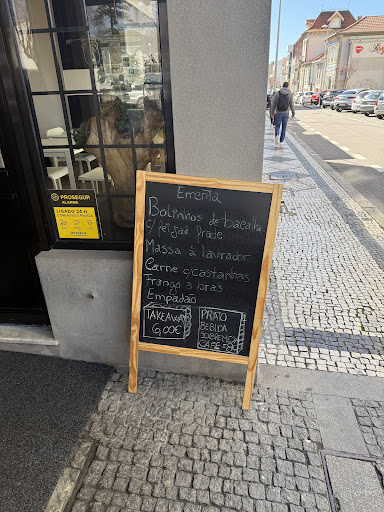 Ementa
Bolinhos de bacalhau
c/ feijão frade
Massa à lavrador
Carne c/castanhas
Frango à brás
Empadão
TAKEAWAY
6,00€
PRATO
BEBIDA
SOBREMESA
CAFÉ
PROSEGUR
ALARMS
LIGADO 24 H